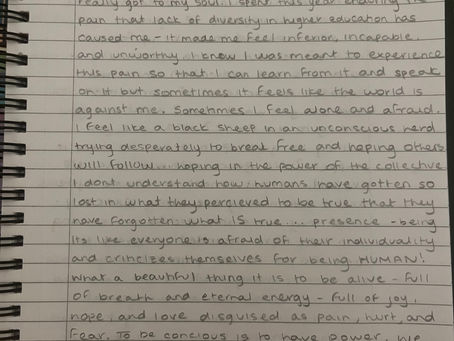 really got to my soul. I spent this year enduring the
pain that lack of diversity in higher education has
caused me - it made me feel inferior, incapable,
and unworthy. I know I was meant to experience
this pain so that I can learn from it and speak
on it but sometimes it feels like the world is
against me. Sometimes I feel alone and afraid.
I feel like a black sheep in an unconscious herd
trying desperately to break free and hoping others
will follow... hoping in the power of the collective
I dont understand how humans have gotten so
lost in what they percieved to be true that they
have forgotten what IS true... presence - being
Its like everyone is afraid of their individuality
and criticizes themselves for being HUMAN!
What a beautiful thing it is to be alive - full
of breath and eternal energy - full of joy,
hope, and love disguised as pain, hurt, and
fear. To be concious is to have power. We